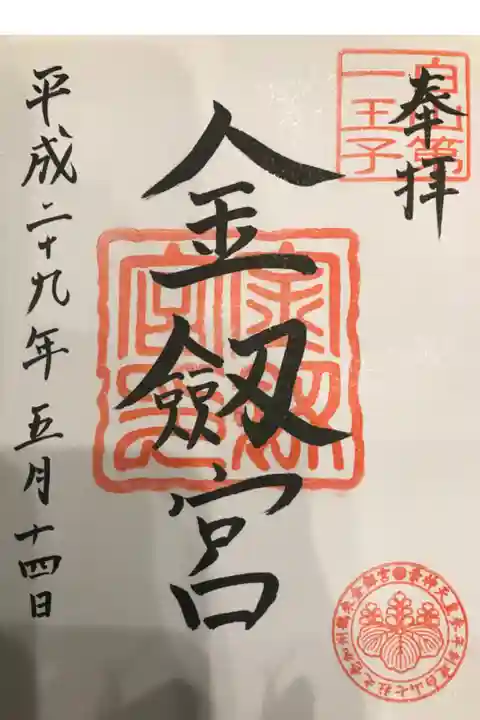 奉拝
白山第
一王子
金劔宮
平成二十九年五月十四日